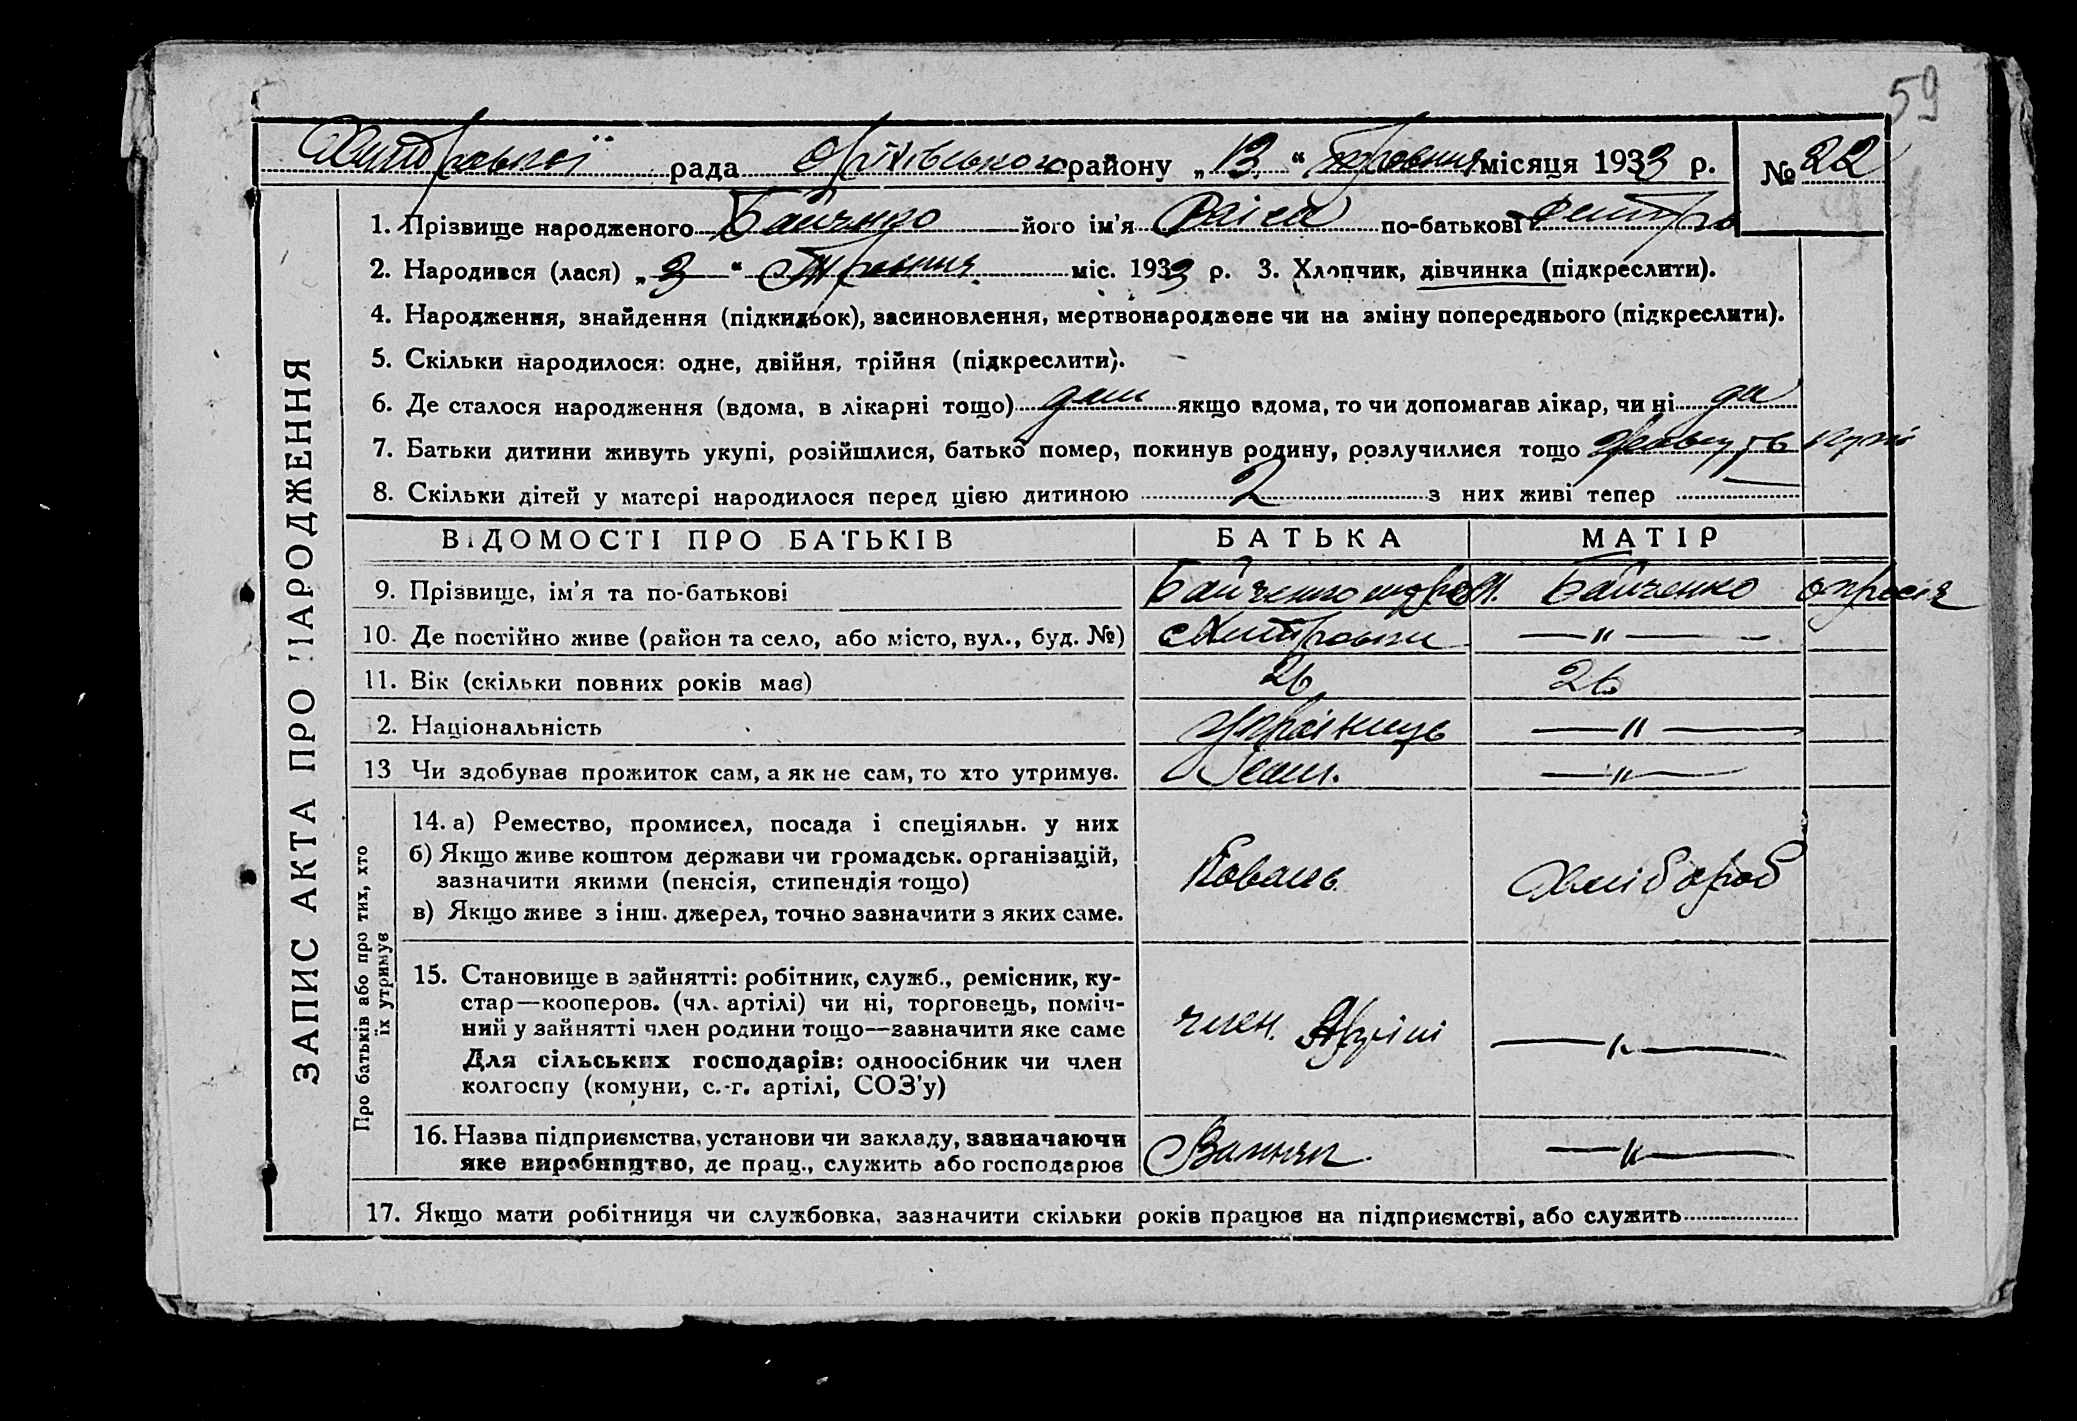 59
рада Оріхівського району „13“ травня місяця 1933 р. № 22
1. Прізвище народженого Байченко його ім'я Раіса по-батькові
2. Народився (лася) „3“ Травня міс. 1933 р. 3. Хлопчик, дівчинка (підкреслити).
4. Народження, знайдення (підкидьок), засиновлення, мертвонароджене чи на зміну попереднього (підкреслити).
5. Скільки народилося: одне, двійня, трійня (підкреслити).
6. Де сталося народження (вдома, в лікарні тощо) якщо вдома, то чи допомагав лікар, чи ні да
7. Батьки дитини живуть укупі, розійшлися, батько помер, покинув родину, розлучилися тощо живуть
8. Скільки дітей у матері народилося перед цією дитиною 2 з них живі тепер —
ЗАПИС АКТА ПРО НАРОДЖЕННЯ
ВІДОМОСТІ ПРО БАТЬКІВ БАТЬКА МАТІР
9. Прізвище, ім'я та по-батькові Байченко Байченко
10. Де постійно живе (район та село, або місто, вул., буд. №) — " —
11. Вік (скільки повних років має) 26 26
12. Національність українець — " —
13 Чи здобував прожиток сам, а як не сам, то хто утримує. сам. — " —
Про батьків або про тих, хто їх утримує
14. а) Ремество, промисел, посада і спеціяльн. у них
б) Якщо живе коштом держави чи громадськ. організацій,
зазначити якими (пенсія, стипендія тощо) Коваль Хлібороб
в) Якщо живе з інш. джерел, точно зазначити з яких саме.
15. Становище в зайнятті: робітник, служб., ремісник, ку-
стар—кооперов. (чл. артілі) чи ні, торговець, поміч-
ний у зайнятті член родини тощо—зазначити яке саме член Артілі — " —
Для сільських господарів: одноосібник чи член
колгоспу (комуни, с.-г. артілі, СОЗ'у)
16. Назва підприємства, установи чи закладу, зазначаючи
яке виробництво, де прац., служить або господарює — " —
17. Якщо мати робітниця чи службовка, зазначити скільки років працює на підприємстві, або служить